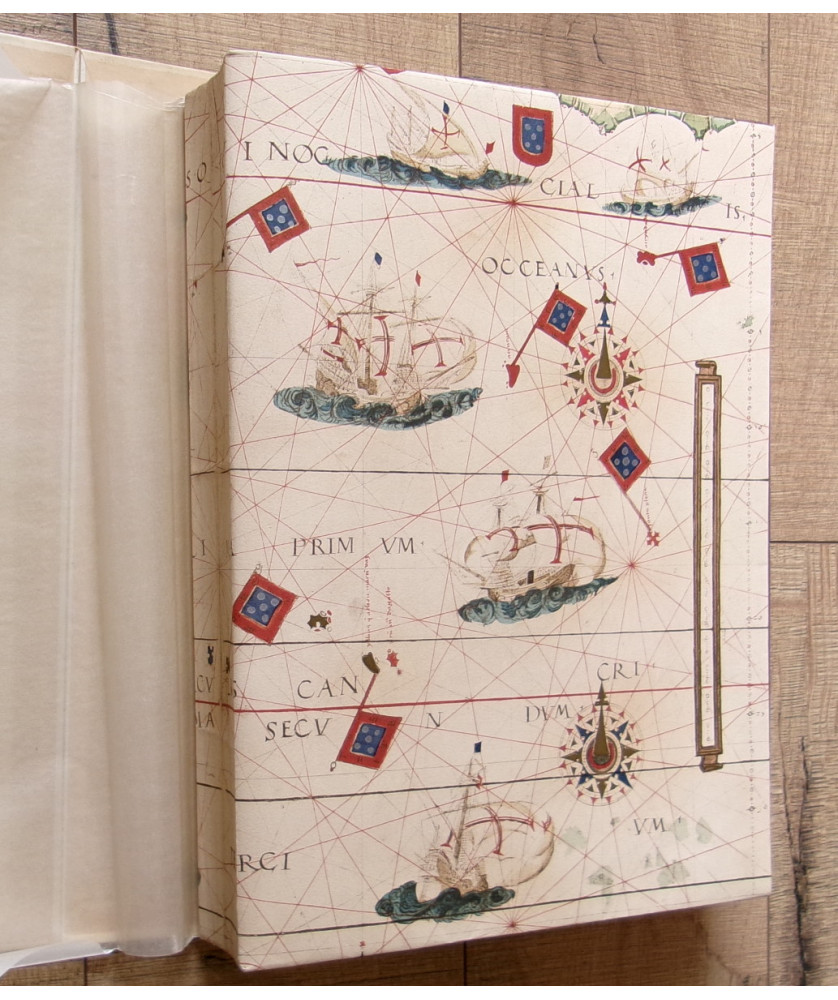 I NOC
CIAL
IS,
OCCEANVS
PRIM VM
CAN
CRI
SECV N
DVM
VM
RCI